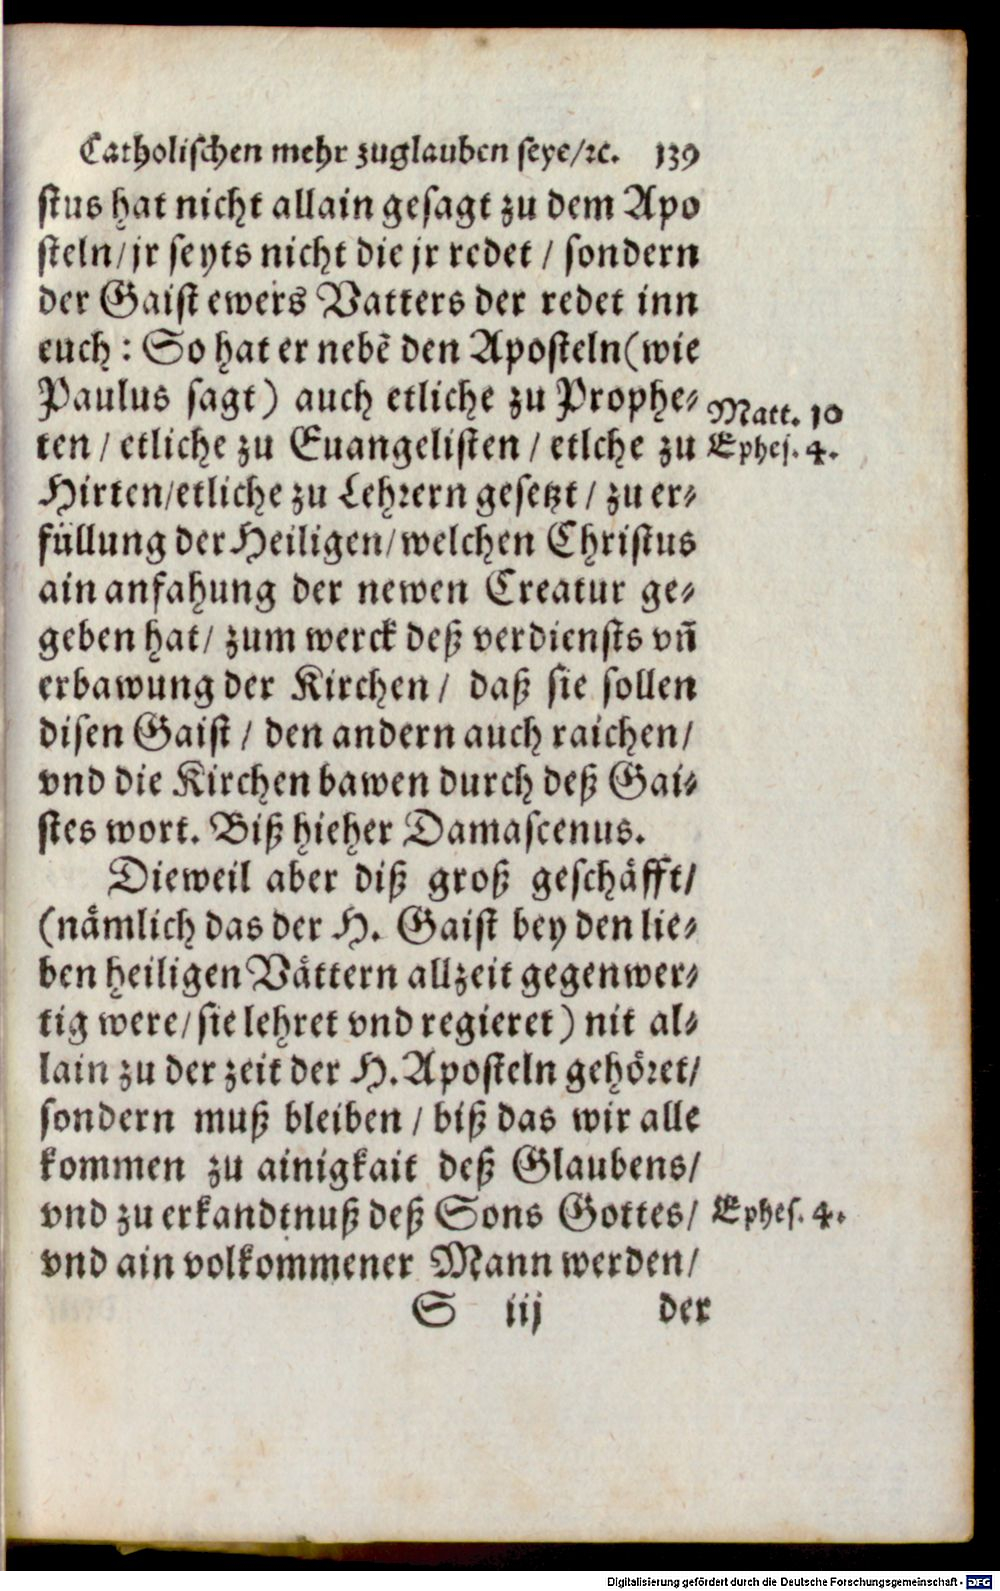 Catholischen mehr zuglauben seye/ꝛc. 139
stus hat nicht allain gesagt zu dem Apo
steln/jr seyts nicht die jr redet / sondern
der Gaist ewers Vatters der redet inn
euch : So hat er nebẽ den Aposteln(wie
Paulus sagt) auch etliche zu Prophe⸗
Matt. 10
ten / etliche zu Euangelisten / etlche zu
Ephes. 4.
Hirten/etliche zu Lehrern gesetzt / zu er⸗
füllung der Heiligen/welchen Christus
ain anfahung der newen Creatur ge⸗
geben hat/ zum werck deß verdiensts vñ
erbawung der Kirchen / daß sie sollen
disen Gaist / den andern auch raichen/
vnd die Kirchen bawen durch deß Gai⸗
stes wort. Biß hieher Damascenus.
Dieweil aber diß groß geschäfft/
(nämlich das der H. Gaist bey den lie⸗
ben heiligen Vättern allzeit gegenwer⸗
tig were/sie lehret vnd regieret) nit al⸗
lain zu der zeit der H. Aposteln gehöret/
sondern muß bleiben / biß das wir alle
kommen zu ainigkait deß Glaubens/
vnd zu erkandtnuß deß Sons Gottes/
Ephes. 4.
vnd ain volkommener Mann werden/
S iij der
Digitalisierung gefördert durch die Deutsche Forschungsgemeinschaft - DFG